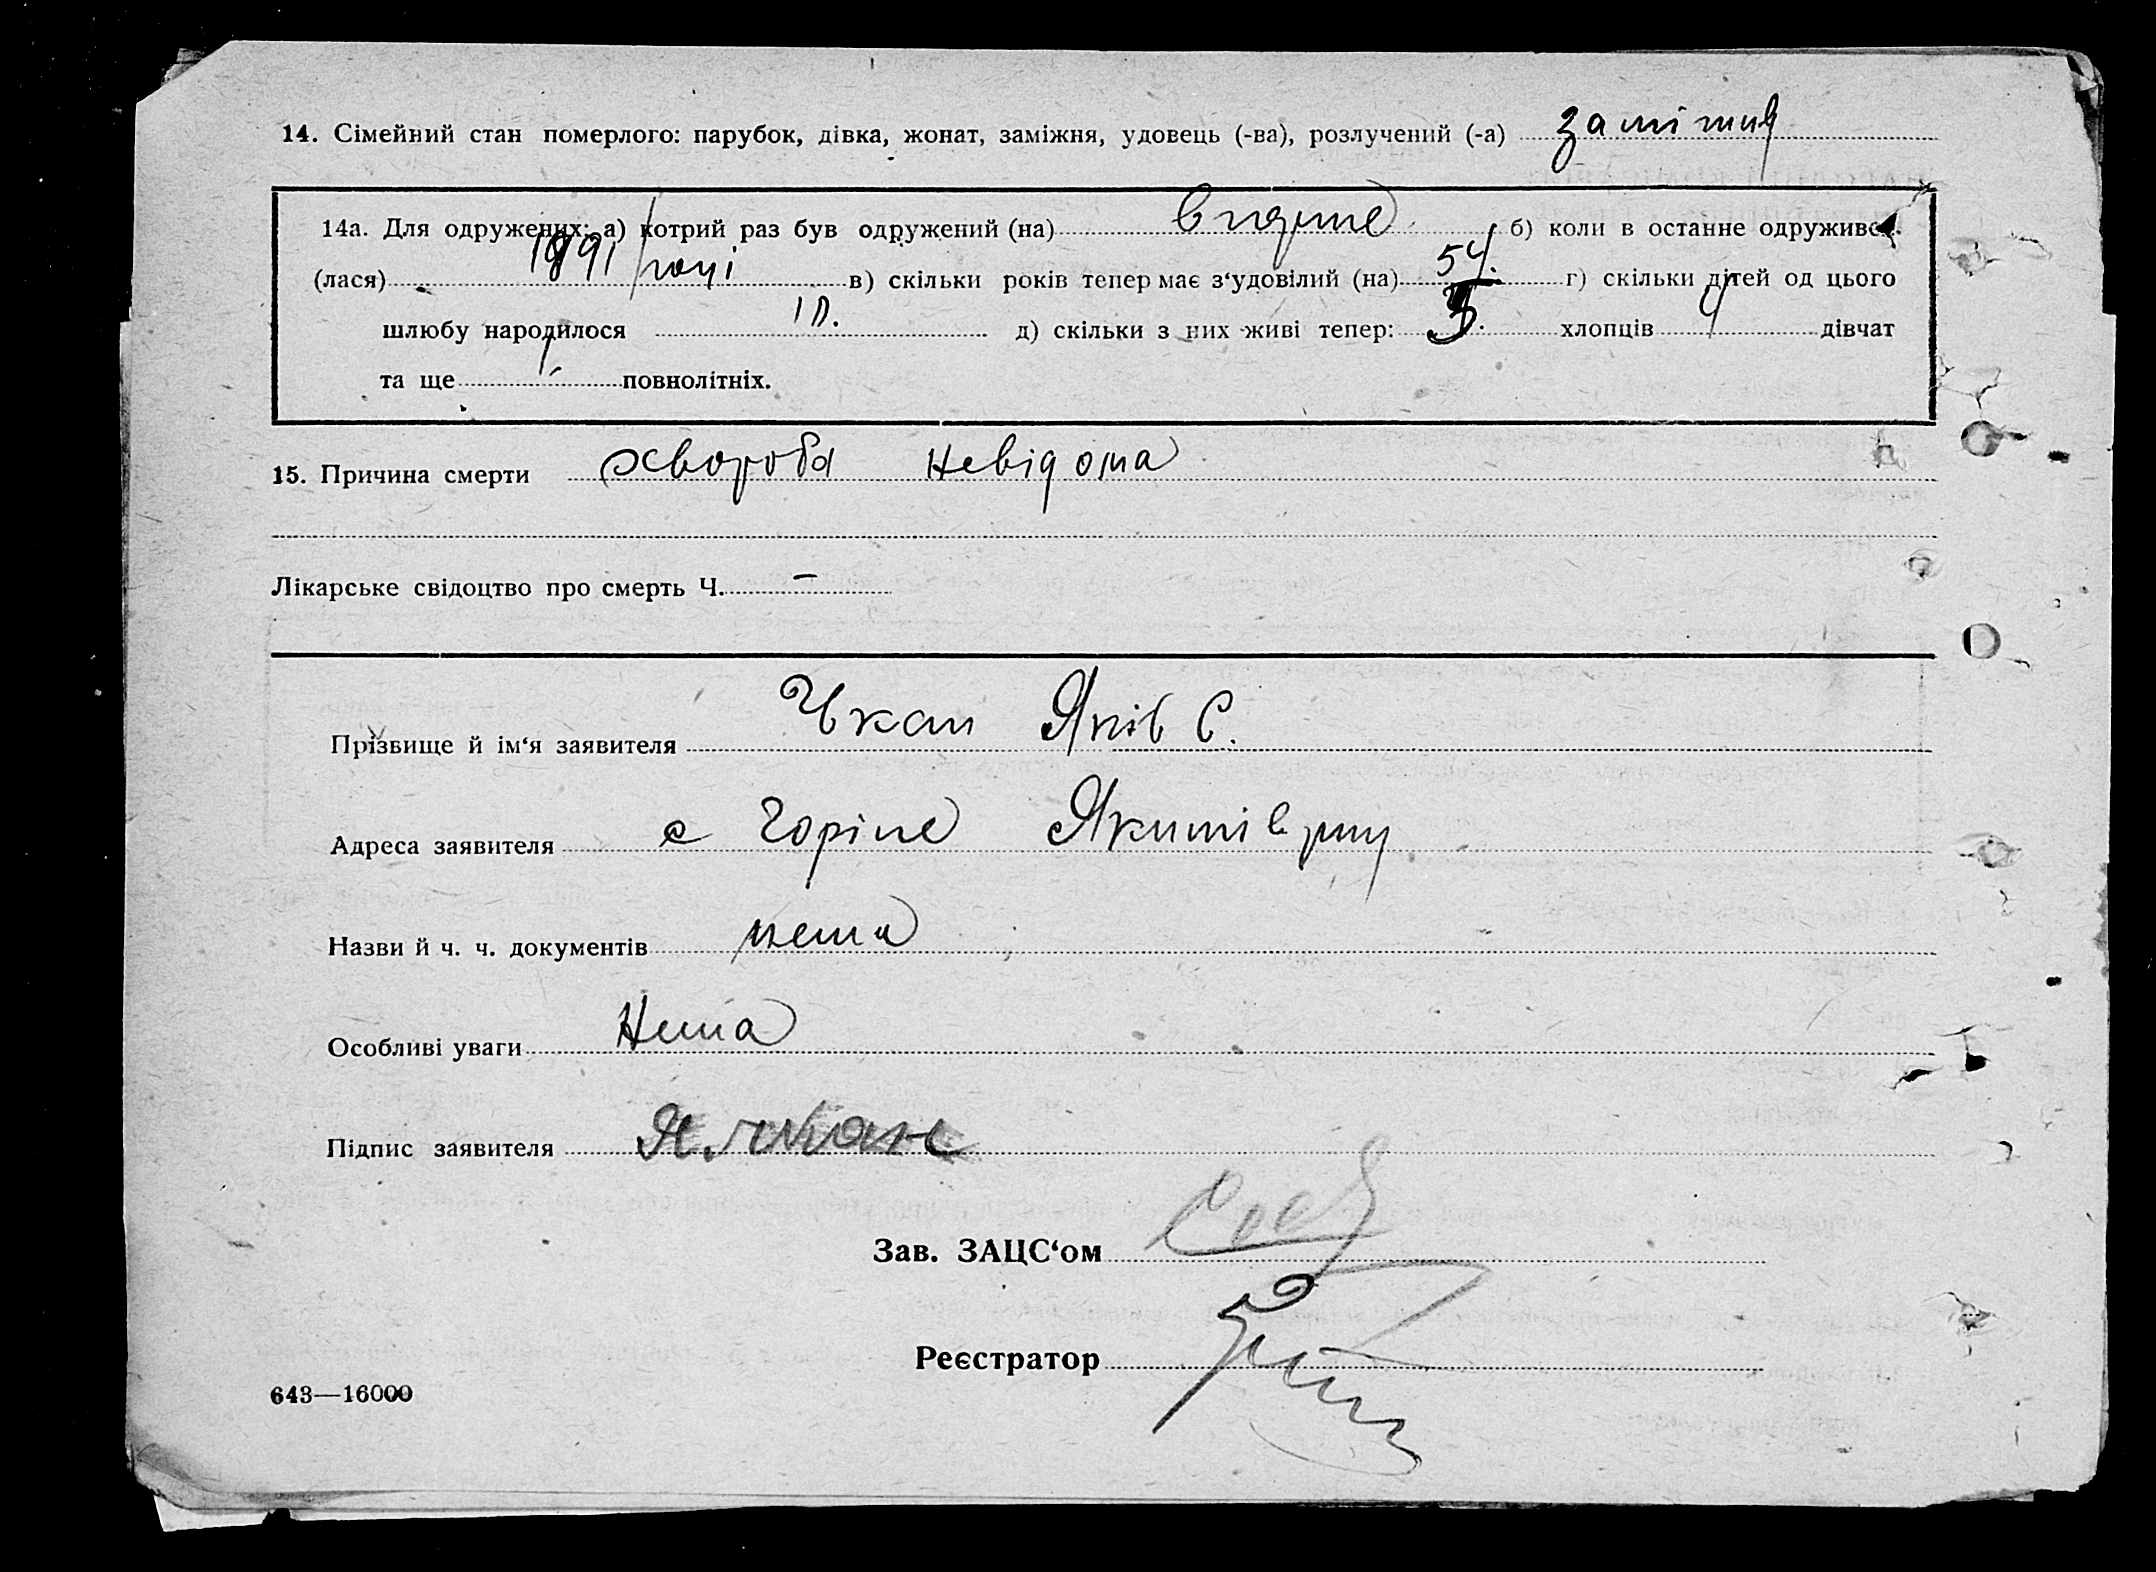 14. Сімейний стан померлого: парубок, дівка, жонат, заміжня, удовець (-ва), розлучений (-а) заміжня
14а. Для одружених: а) котрий раз був одружений (на) вперше б) коли в останнє одружився
(лася) 1891 році в) скільки років тепер має з‘удовілий (на) 54. г) скільки дітей од цього
шлюбу народилося 10. д) скільки з них живі тепер: хлопців 4 дівчат
та ще повнолітніх.
15. Причина смерти хвороба невідома
Лікарське свідоцтво про смерть Ч. –
Прізвище й ім‘я заявителя Чкан Яків С.
Адреса заявителя с Якимівщ
Назви й ч. ч. документів нема
Особливі уваги Нема
Підпис заявителя Я. Чкан
Зав. ЗАЦС‘ом
Реєстратор
643—16000